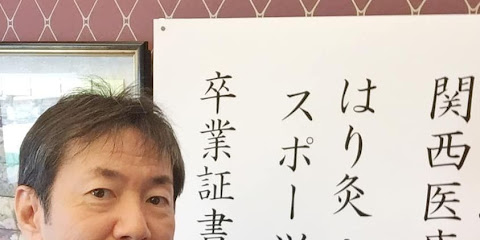 関西医療
はり灸
スポーツ
卒業証書